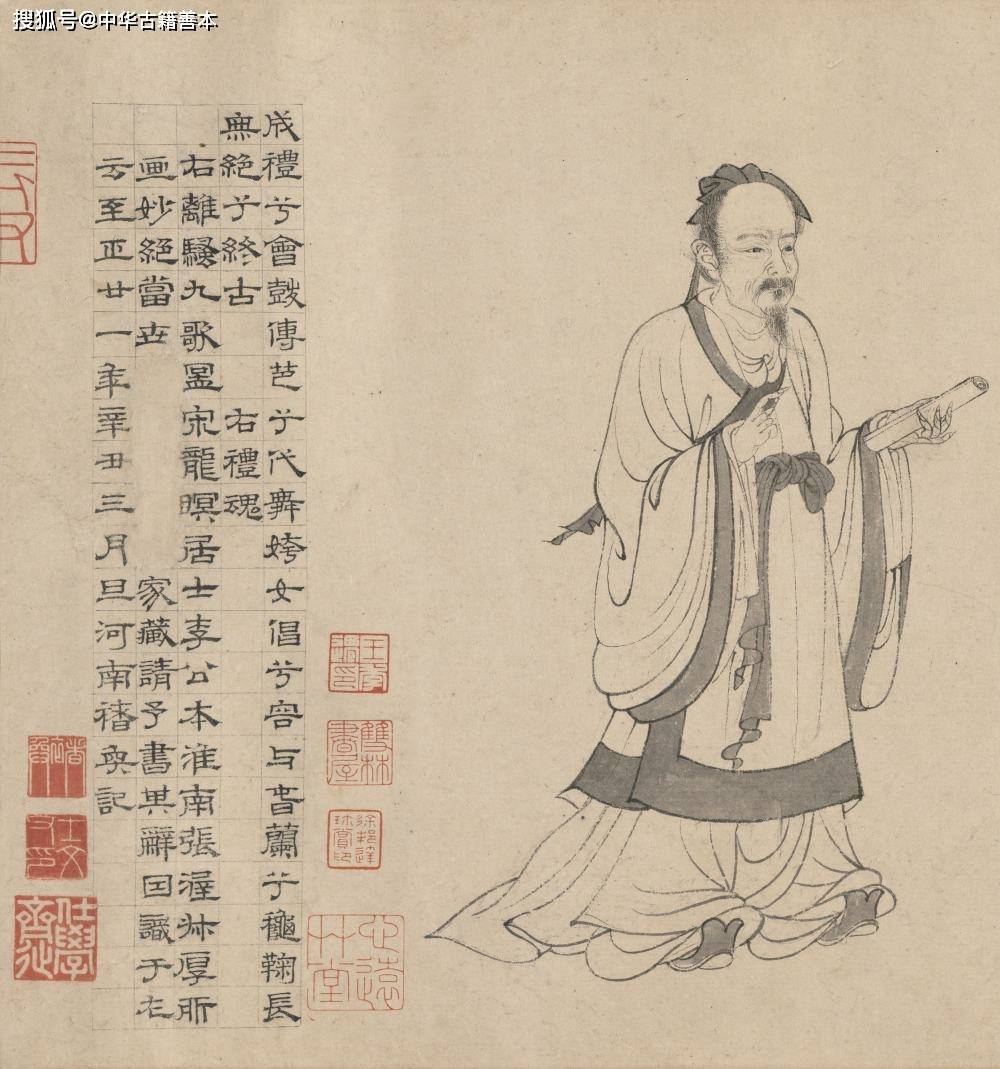 搜狐号@中华古籍善本
成禮兮會鼓傳芭兮代舞姱女倡兮容与旾蘭兮龝鞠長
無絕兮終古 右禮魂
右離騷九歌啚宋龍暝居士李公本淮南張渥叔厚所
画妙絕當世 家藏請予書其辭因識于左
云至正廿一年辛丑三月旦河南褚奐記
雙林書屋
徐邦達珍賞印